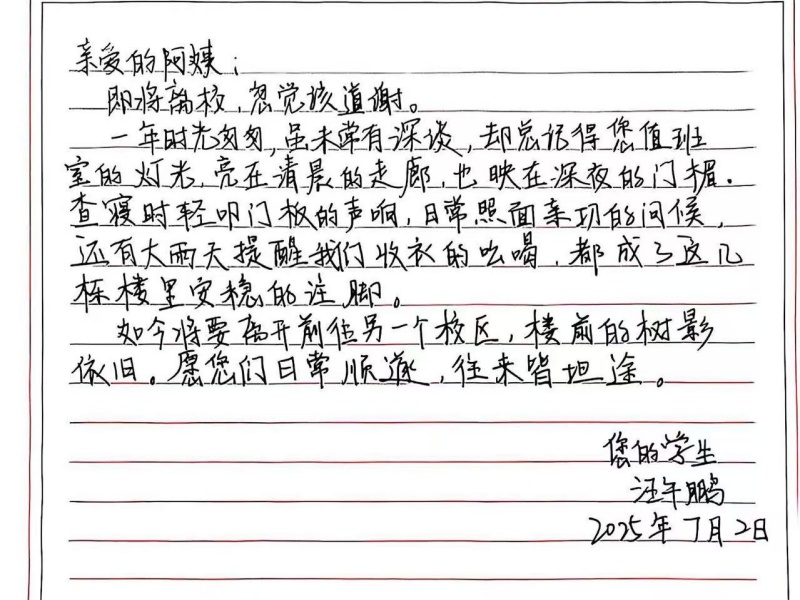 亲爱的阿姨：
即将离校，忽觉该道谢。
一年时光匆匆，虽未常有深谈，却总记得您值班
室的灯光，亮在清晨的走廊，也映在深夜的门楣。
查寝时轻叩门板的声响，日常照面亲切的问候，
还有大雨天提醒我们收衣的吆喝，都成了这几
栋楼里安稳的注脚。
如今将要离开前往另一个校区，楼前的树影
依旧。愿您们日常顺遂，往来皆坦途。
您的学生
汪午鹏
2025年7月2日